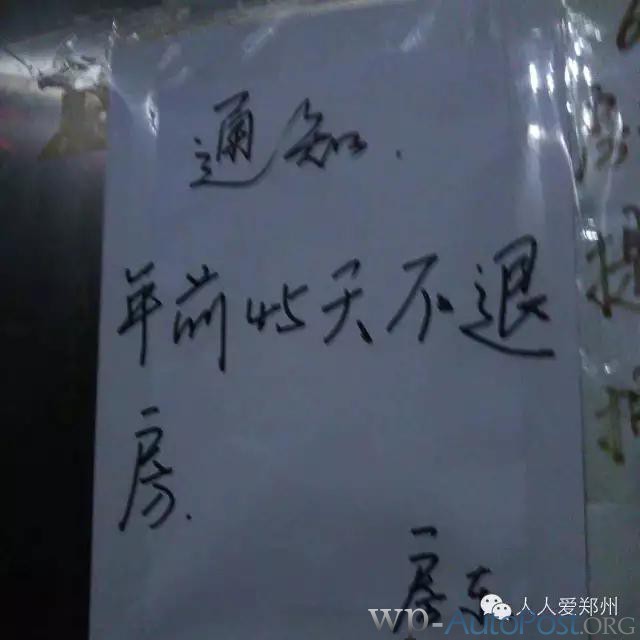 通知.
年前45天不退
房.
房东
人人爱郑州
wp-AutoPost.ORG